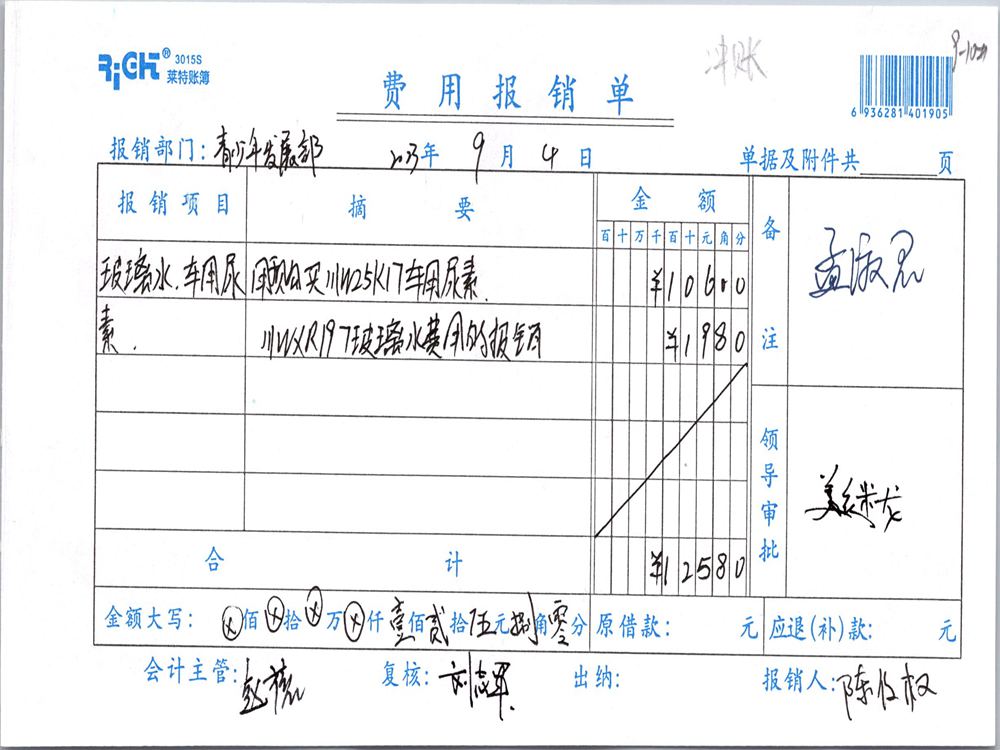 RiGHT® 3015S
莱特账簿
冲账
费用报销单
6 936281 401905
报销部门：青少年发展部 2023年 9月 4日 单据及附件共 页
报销项目 摘要 金额 备注
百十万千百十元角分
玻璃水.车用尿 用预购买川W25K17车用尿素. ¥10600
素. 川WXR197玻璃水费用的报销 ¥1980
领导审批
合计 ¥12580
金额大写：ⓧ佰ⓧ拾ⓧ万ⓧ仟壹佰贰拾伍元捌角零分 原借款： 元 应退(补)款： 元
会计主管： 复核：刘志军 出纳： 报销人：